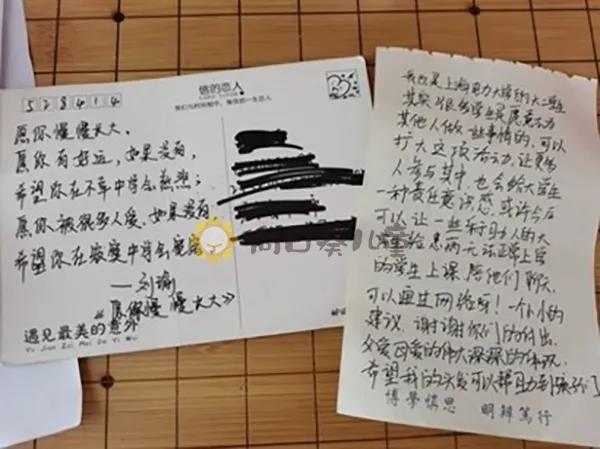 528414
信的恋人
愿你慢慢长大。
愿你有好运，如果没有，
希望你在不幸中学会慈悲；
愿你被很多人爱，如果没有
希望你在寂寞中学会宽容
——刘瑜
《愿你慢慢长大》
遇见最美的意外
Yu Jian Zui Mei De Yi Wai
我也是上海电力大学的大二学生
其实很多学生是愿意去为
其他人做一些事情的，可以
扩大这项活动力，让更多
人参与其中，也会给大学生
一种责任意识感，或许今后
可以让一些
给患病无法正常上学
的学生上课，陪他们聊天，
可以通过网络呀！一个小小的
建议，谢谢你们的付出，
父爱母爱的伟大深深的体现，
希望我的头发可以帮助到孩子们
博學慎思 明辨篤行
向日葵儿童